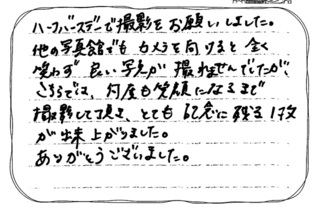 ハーフバースデーで撮影をお願いしました。
他の写真館でもカメラを向けると全く
笑わず良い写真が撮れませんでしたが、
こちらでは、何度も笑顔になるまで
撮影して頂き、とても記念に残る1枚
が出来上がりました。
ありがとうございました。